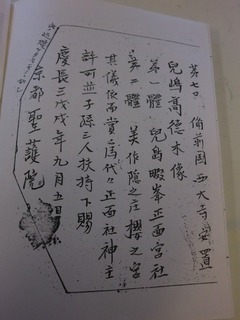 第七 備前国西大寺安置
児嶋高徳木像
第一體 児島暇峯正面宮社
第二體 美作院之庄櫻之宮
其儀依而賞之為代々正面社神主
許可並子孫三人扶持下賜
慶長三戊戌年九月五日
京都聖護院